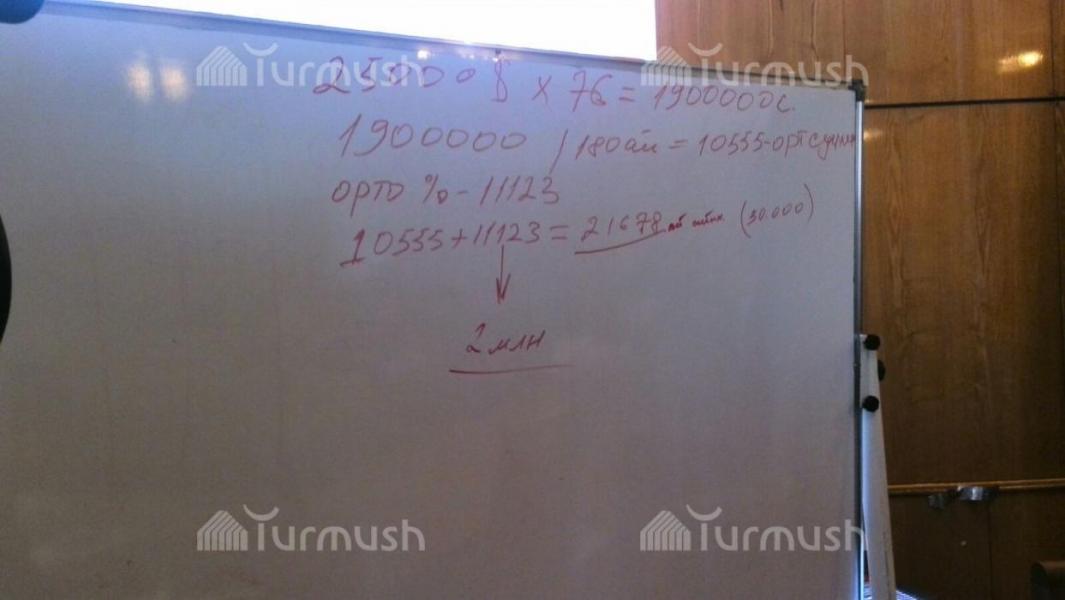 Turmush Turmush
25000 $ x 76 = 1900000с.
1900000 / 180 ай = 10555-орт
орто % - 11123
10555 + 11123 = 21678 (30.000)
2 млн
Turmush Turmush